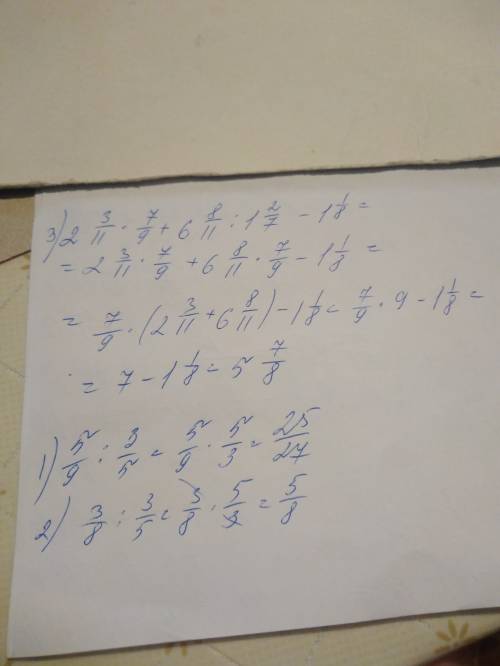 3) 2 3/11 · 7/9 + 6 8/11 : 1 2/7 - 1 1/8 =
= 2 3/11 · 7/9 + 6 8/11 · 7/9 - 1 1/8 =
= 7/9 · (2 3/11 + 6 8/11) - 1 1/8 = 7/9 · 9 - 1 1/8 =
= 7 - 1 1/8 = 5 7/8
1) 5/9 : 3/5 = 5/9 · 5/3 = 25/27
2) 3/8 : 3/5 = 3/8 · 5/3 = 5/8